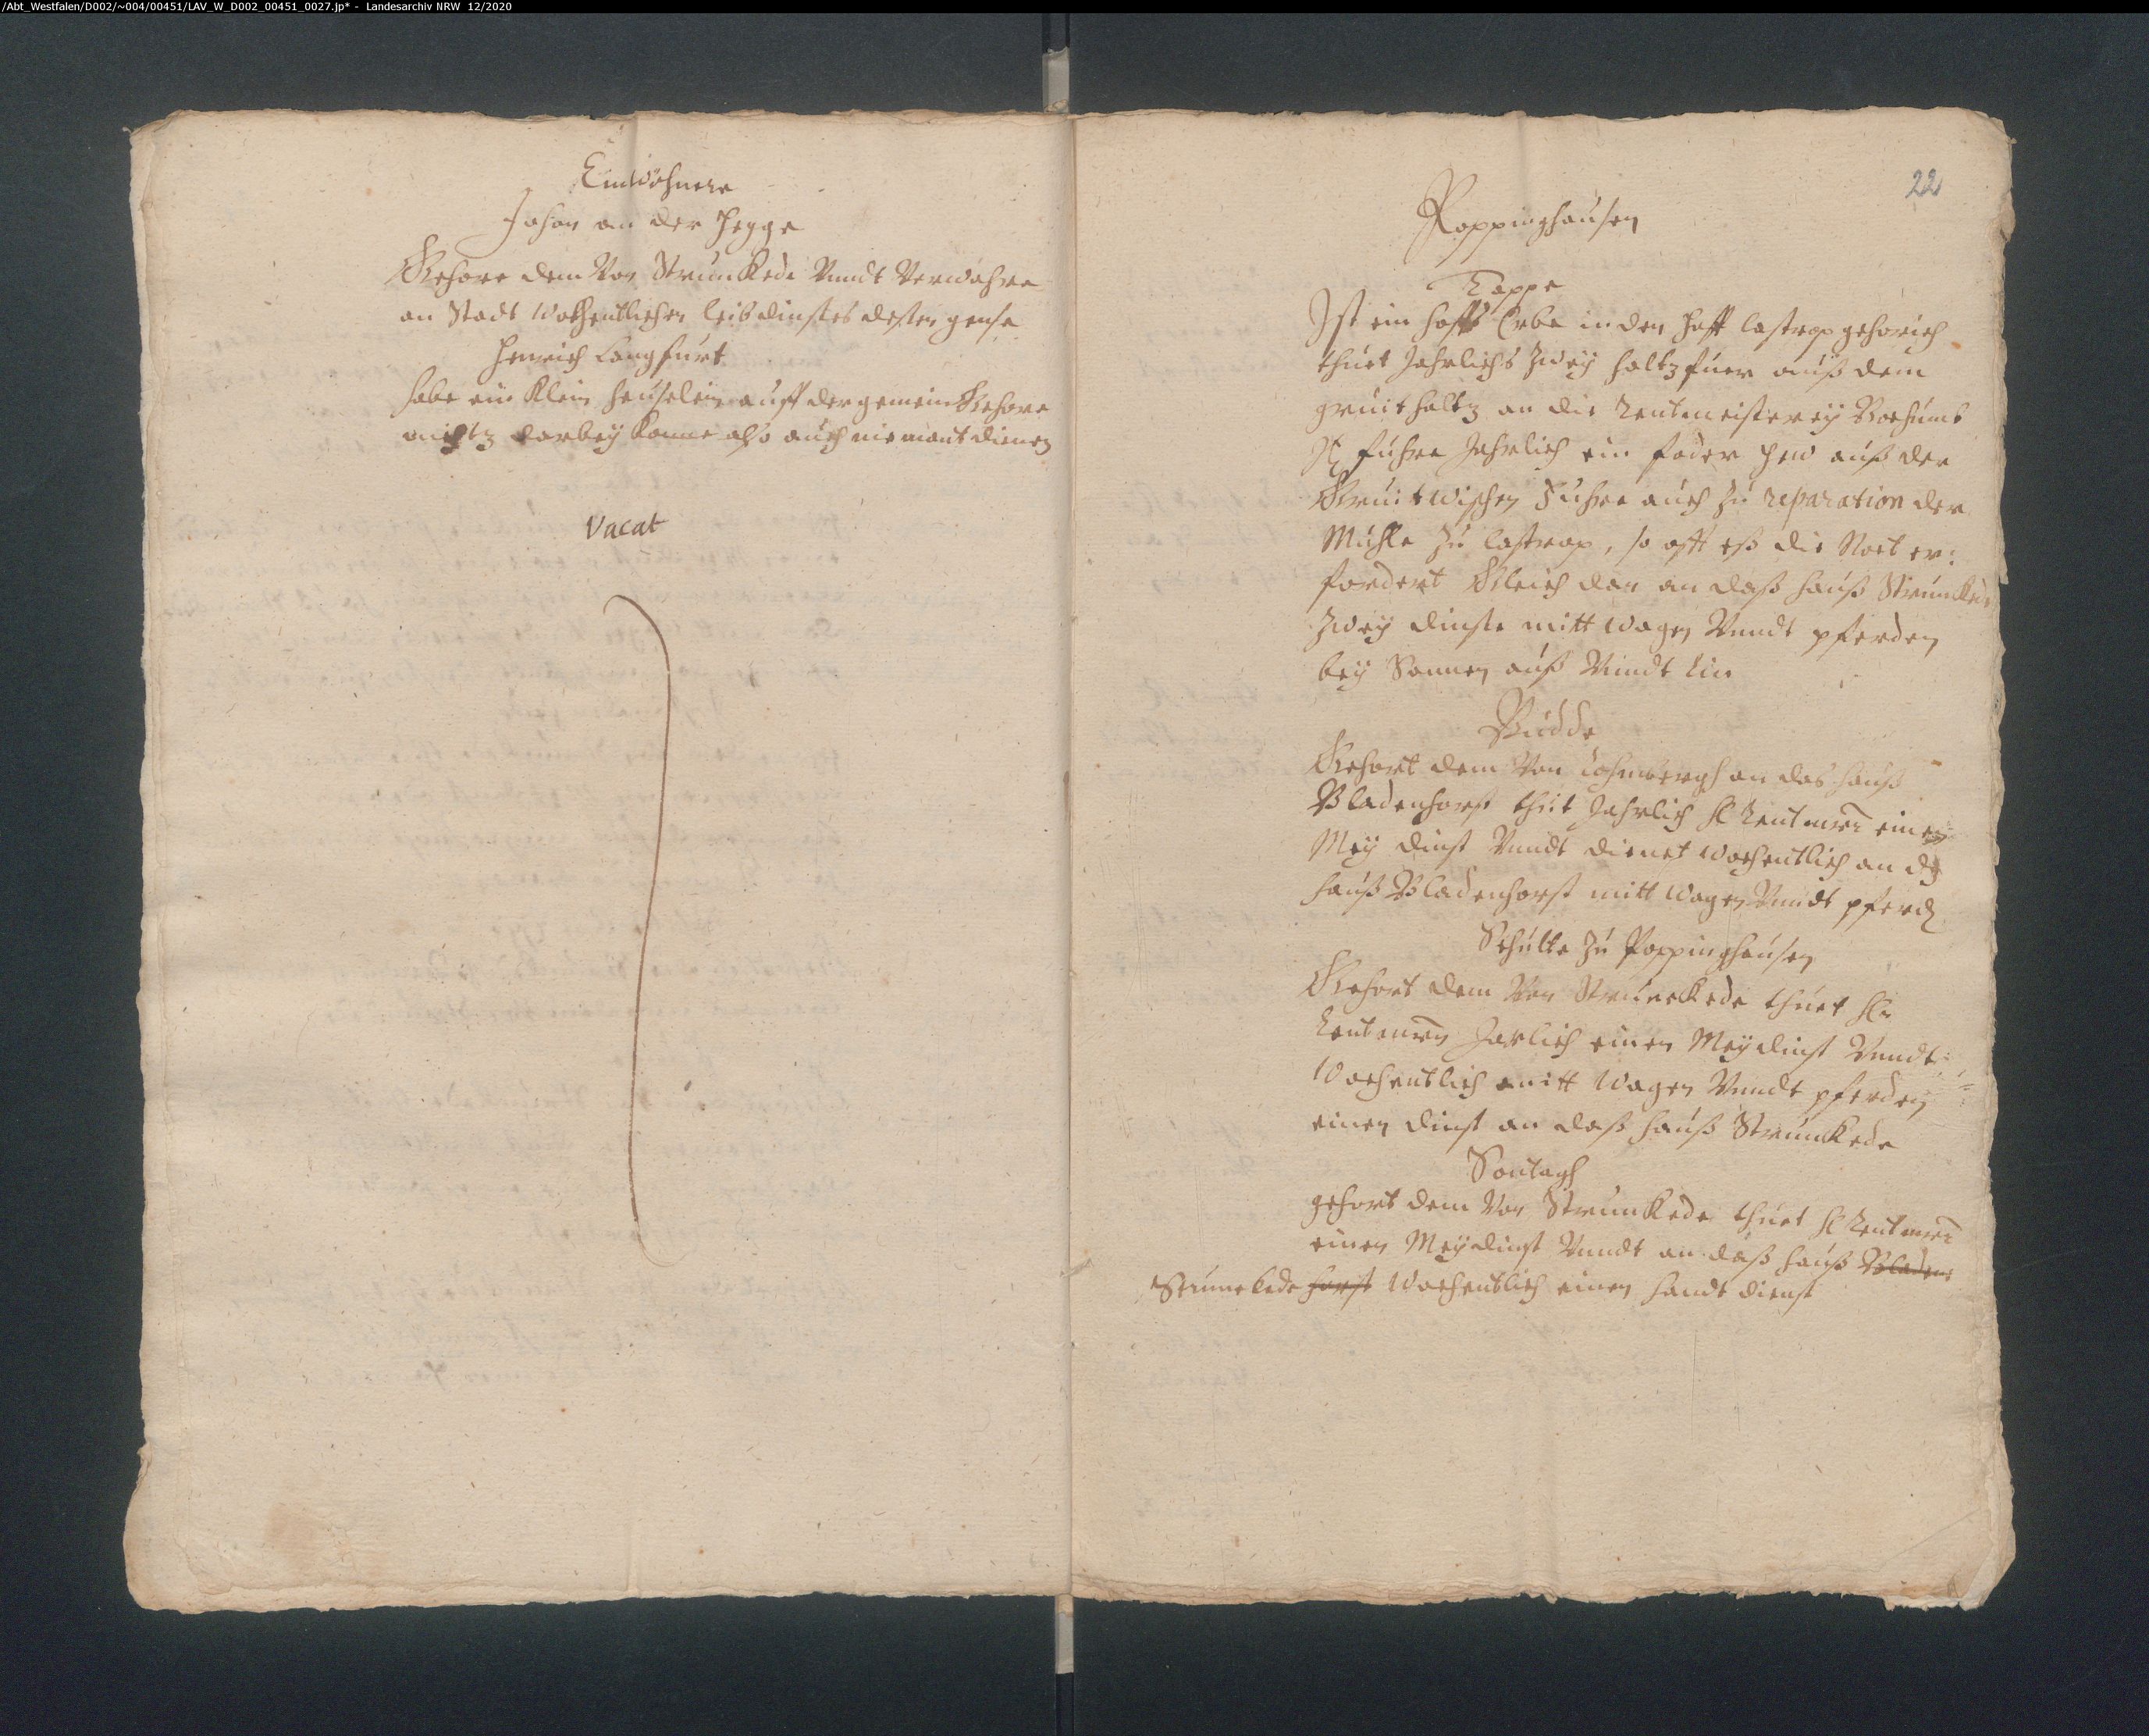 /Abt_Westfalen/D002/~004/00451/LAV_W_D002_00451_0027.jp* - Landesarchiv NRW 12/2020
Einwöhnere
Johan an der Hegge
Gehöre dem Von Strünkede Vnndt Verwahre
an Stadt wochentlichen leibdinstes desten gense
Henrich Langfurt
habe ein klein heuselein auff der gemein Gehöre
nichtz darbey konne also auch niemant dienen
Vacat
22
Poppinghausen
Tappe
Ist ein hoffs Erbe in den Hoff Castrop gehorich
thuet Jahrlichs zwey holtzfuer auß dem
gruitholtz an die Rentmeisterey Bochumb
It fuhre Jahrlich ein foder Hew auß der
Gruitwischen Fuhre auch zu reparation der
Muhle zu Castrop, so offt eß die Noet er:
fordert Gleich dan an daß hauß Strunkede
zwey dinste mitt wagen Vnndt pferden
bey Sonnen auß Vnndt Ein
Budde
Gehort dem Von an das hauß
Bladenhorst thut Jahrlich H Rentmrn einen
Mey dinst Vnndt dienet wochentlich an dz
hauß Bladenhorst mitt wagen Vnndt pferd
Schulte zu Poppinghausen
Gehort dem Von Strünckede thuet Hr
Rentmrn Jarlich einen Meydinst Vnndt
Wochentlich mitt Wagen Vnndt pferden
einen dinst an daß hauß Strunkede
Sontagh
gehort dem Von Strunkede thuet H Rentmrn
einen Meydinst Vnndt an daß hauß Bladen
Strunckede horst Wochentlich einen handt dienst